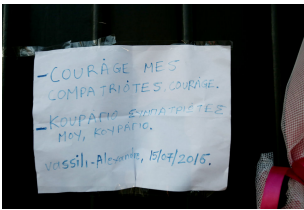 -COURAGE MES
COMPATRIÒTES, COURAGE.
-ΚΟΥΡΑΓΙΟ ΣΥΜΠΑΤΡΙΩΤΕΣ
ΜΟΥ, ΚΟΥΡΑΓΙΟ.
Vassili-Alexandre, 15/07/2015.